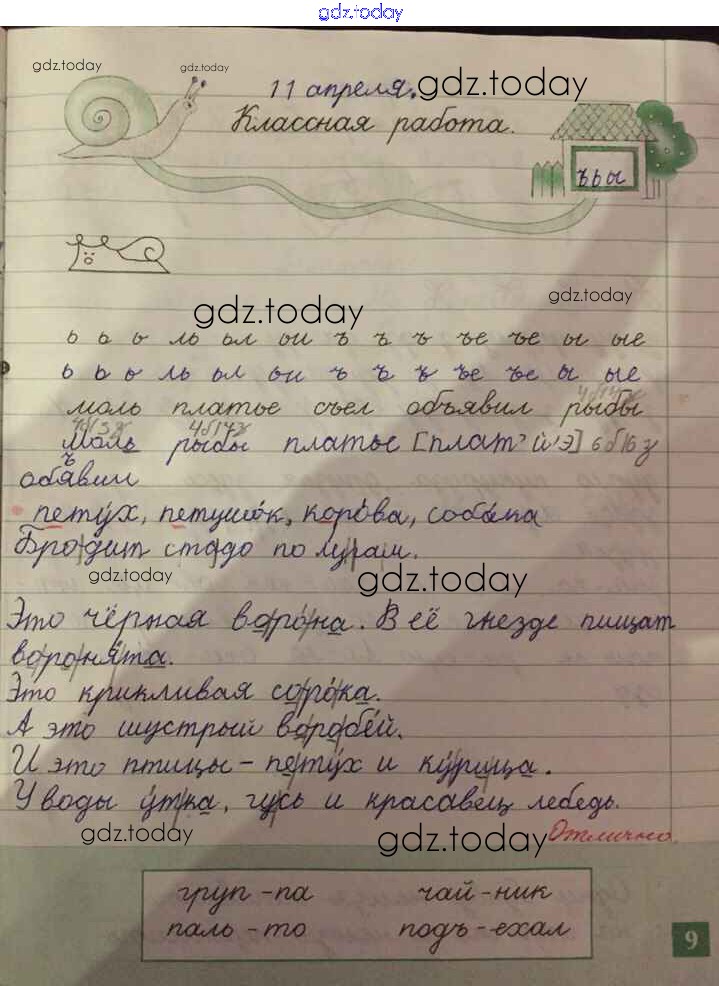 gdz.today
gdz.today
gdz.today
11 апреля. gdz.today
Классная работа.
ъ ь ы
gdz.today
gdz.today
ь ь ь ль ьл ьи ъ ъ ъ ъе ъе ы ые
ь ь ь ль ьл ьи ъ ъ ъ ъе ъе ы ые
моль платье съел объявил рыбы
моль рыбы платье [плат'й'э] 6 б 6 з
объявил
петух, петушок, корова, собака
Бродит стадо по лугам.
gdz.today gdz.today
Это чёрная ворона. В её гнезде пищат
воронята.
Это крикливая сорока.
А это шустрый воробей.
И это птицы - петух и курица.
У воды утка, гусь и красавец лебедь.
gdz.today gdz.today Отлично.
груп - па чай - ник
паль - то подъ - ехал
gdz.today gdz.today
9